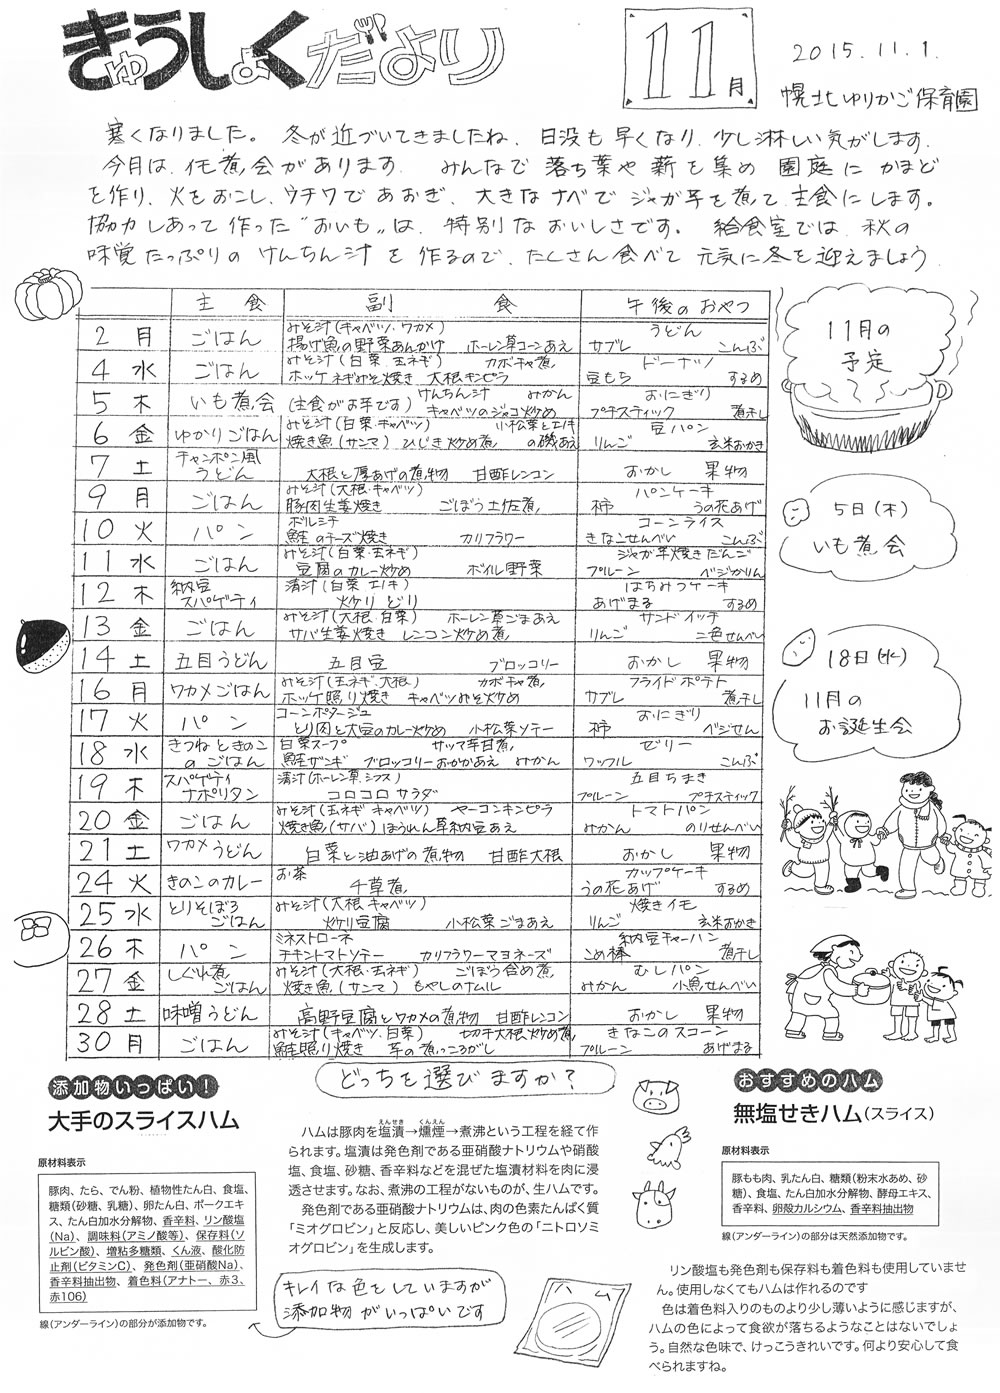 きゅうしょくだより
11月
2015.11.1.
幌北ゆりかご保育園
寒くなりました。冬が近づいてきましたね、日没も早くなり、少し淋しい気がします。
今月は、イモ煮会があります。みんなで落ち葉や薪を集め園庭にかまど
を作り、火をおこし、ウチワであおぎ、大きなナベでジャガ芋を煮て、主食にします。
協力しあって作った"おいも"は、特別なおいしさです。給食室では、秋の
味覚たっぷりのけんちん汁を作るので、たくさん食べて元気に冬を迎えましょう
主食 副食 午後のおやつ
2 月 ごはん みそ汁(キャベツ、ワカメ) 揚げ魚の野菜あんかけ ホーレン草コーンあえ うどん サブレ こんぶ
4 水 ごはん みそ汁(白菜、玉ネギ) カボチャ煮 ホッケネギみそ焼き 大根キンピラ ドーナツ 豆もち するめ
5 木 いも煮会 (主食がお芋です) けんちん汁 みかん キャベツのジャコ炒め おにぎり プチスティック 煮干し
6 金 ゆかりごはん みそ汁(白菜・キャベツ) 小松菜とエノキの磯あえ 焼き魚(サンマ) ひじき炒め煮 豆パン りんご 玄米おかき
7 土 チャンポン風うどん 大根と厚あげの煮物 甘酢レンコン おかし 果物
9 月 ごはん みそ汁(大根・キャベツ) 豚肉生姜焼き ごぼう土佐煮 パンケーキ 柿 うの花あげ
10 火 パン ボルシチ 鮭のチーズ焼き カリフラワー コーンライス きなこせんべい こんぶ
11 水 ごはん みそ汁(白菜・玉ネギ) 豆腐のカレー炒め ボイル野菜 ジャガ芋焼きだんご プルーン ベジかりん
12 木 納豆スパゲティ 清汁(白菜 エノキ) 炒りどり はちみつケーキ あげまる するめ
13 金 ごはん みそ汁(大根、白菜) ホーレン草ごまあえ サバ生姜焼き レンコン炒め煮 サンドイッチ りんご 二色せんべい
14 土 五目うどん 五目豆 ブロッコリー おかし 果物
16 月 ワカメごはん みそ汁(玉ネギ、大根) カボチャ煮 ホッケ照り焼き キャベツみそ炒め フライドポテト サブレ 煮干し
17 火 パン コーンポタージュ とり肉と大豆のカレー炒め 小松菜ソテー おにぎり 柿 ベジせん
18 水 きつねときのこのごはん 白菜スープ サツマ芋甘煮 鮭ザンギ ブロッコリーおかかあえ みかん ゼリー ワッフル こんぶ
19 木 スパゲティナポリタン 清汁(ホーレン草、シラス) コロコロサラダ 五目ちまき プルーン プチスティック
20 金 ごはん みそ汁(玉ネギ キャベツ) ヤーコンキンピラ 焼き魚(サバ) ほうれん草納豆あえ トマトパン みかん のりせんべい
21 土 ワカメうどん 白菜と油あげの煮物 甘酢大根 おかし 果物
24 火 きのこのカレー お茶 千草煮 カップケーキ うの花あげ するめ
25 水 とりそぼろごはん みそ汁(大根、キャベツ) 炒り豆腐 小松菜ごまあえ 焼きイモ りんご 玄米おかき
26 木 パン ミネストローネ チキントマトソテー カリフラワーマヨネーズ 納豆チャーハン こめ棒 煮干し
27 金 しぐれ煮ごはん みそ汁(大根・玉ネギ) ごぼう含め煮 焼き魚(サンマ) もやしのナムル むしパン みかん 小魚せんべい
28 土 味噌うどん 高野豆腐とワカメの煮物 甘酢レンコン おかし 果物
30 月 ごはん みそ汁(キャベツ、白菜) 切り干大根炒め煮 鮭照り焼き 芋の煮っころがし きなこのスコーン プルーン あげまる
11月の
予定
5日(木)
いも煮会
18日(水)
11月の
お誕生会
どっちを選びますか?
添加物いっぱい!
大手のスライスハム
原材料表示
豚肉、たら、でん粉、植物性たん白、食塩、
糖類(砂糖、乳糖)、卵たん白、ポークエキ
ス、たん白加水分解物、香辛料、リン酸塩
(Na)、調味料(アミノ酸等)、保存料(ソ
ルビン酸)、増粘多糖類、くん液、酸化防
止剤(ビタミンC)、発色剤(亜硝酸Na)、
香辛料抽出物、着色料(アナトー、赤3、
赤106)
線(アンダーライン)の部分が添加物です。
ハムは豚肉を塩漬→燻煙→煮沸という工程を経て作
えんせき くんえん
られます。塩漬は発色剤である亜硝酸ナトリウムや硝酸
塩、食塩、砂糖、香辛料などを混ぜた塩漬材料を肉に浸
透させます。なお、煮沸の工程がないものが、生ハムです。
発色剤である亜硝酸ナトリウムは、肉の色素たんぱく質
「ミオグロビン」と反応し、美しいピンク色の「ニトロソミ
オグロビン」を生成します。
キレイな色をしていますが
添加物がいっぱいです
ハム
おすすめのハム
無塩せきハム(スライス)
原材料表示
豚もも肉、乳たん白、糖類(粉末水あめ、砂
糖)、食塩、たん白加水分解物、酵母エキス、
香辛料、卵殻カルシウム、香辛料抽出物
線(アンダーライン)の部分は天然添加物です。
リン酸塩も発色剤も保存料も着色料も使用していませ
ん。使用しなくてもハムは作れるのです
色は着色料入りのものより少し薄いように感じますが、
ハムの色によって食欲が落ちるようなことはないでしょ
う。自然な色味で、けっこうきれいです。何より安心して食
べられますね。